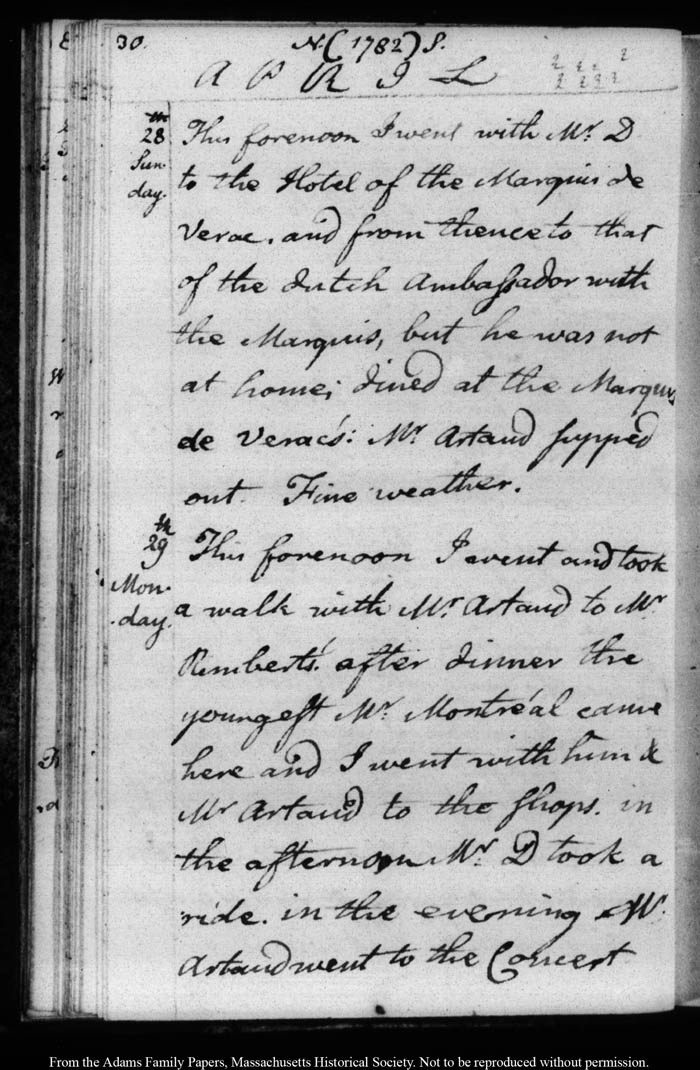 30. N. (1782) S.
APRIL
28th Sunday. This forenoon I went with Mr. D
to the Hotel of the Marquis de
Verac, and from thence to that
of the dutch Ambassador with
the Marquis, but he was not
at home; dined at the Marquis
de Verac's: Mr. Artaud supped
out. Fine weather.
29th Monday. This forenoon I went and took
a walk with Mr. Artaud to Mr.
Rimberts. after dinner the
youngest Mr. Montréal came
here and I went with him &
Mr Artaud to the shops. in
the afternoon Mr. D took a
ride. in the evening Mr.
Artaud went to the Concert
From the Adams Family Papers, Massachusetts Historical Society. Not to be reproduced without permission.